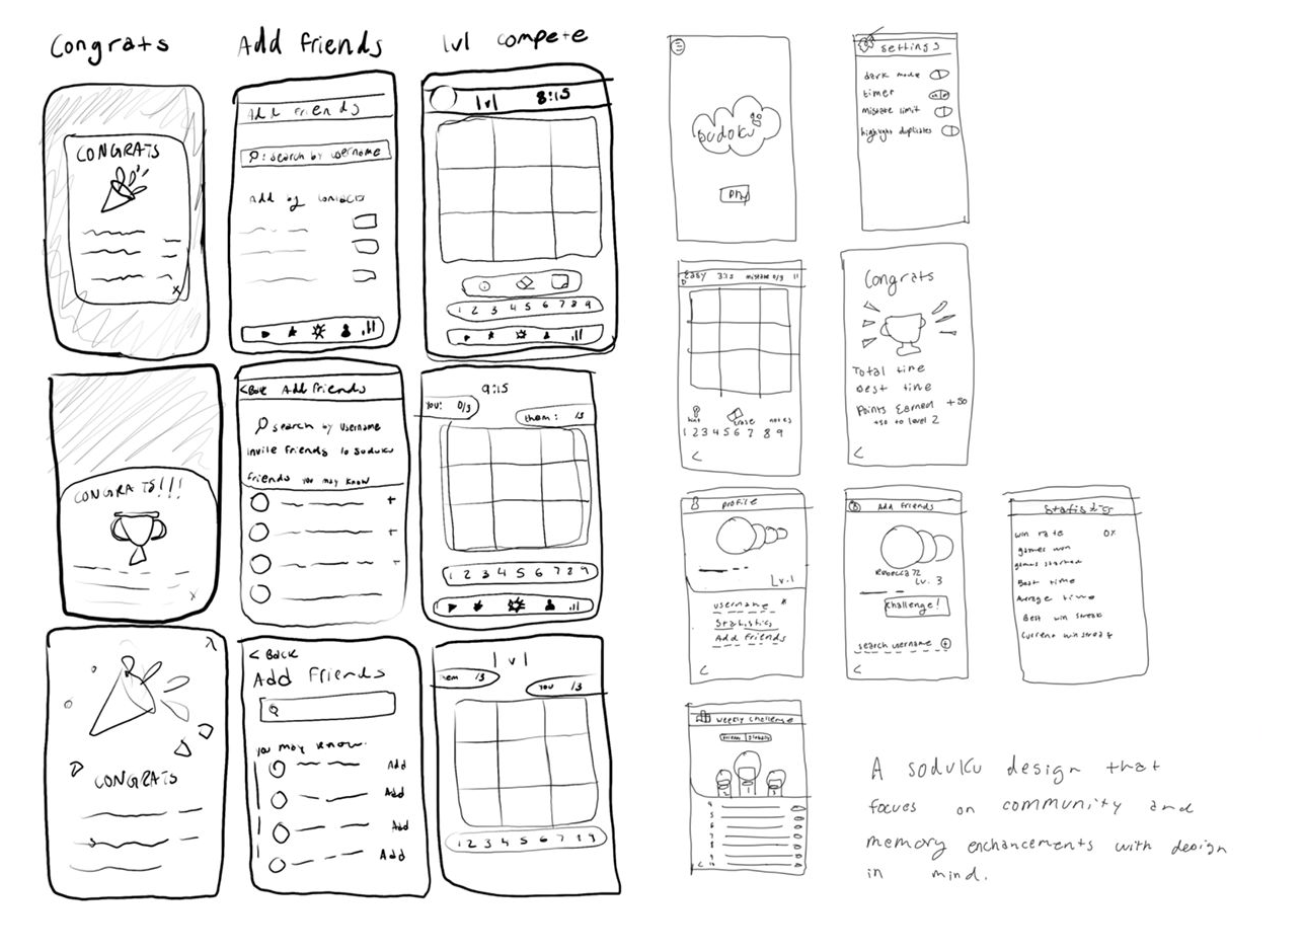 Congrats
Add friends
lvl compete
CONGRATS
Add friends
search by username
add by
lvl 8:15
1 2 3 4 5 6 7 8 9
CONGRATS!!!
< Back Add friends
search by username
invite friends to Soduku
friends you may know
9:15
You: 0/3
them: /3
1 2 3 4 5 6 7 8 9
CONGRATS
< Back
Add Friends
you may know:
Add
Add
Add
Add
lvl
/3
you /3
1 2 3 4 5 6 7 8 9
sudoku
play
settings
dark mode
timer
mistake limit
highlight duplicates
Easy
mistake 0/3 11
hint erase notes
1 2 3 4 5 6 7 8 9
<
Congrats
Total time
Best time
Points Earned +50
+50 to level 2
<
profile
Lv. 1
username
Statistics
Add friends
<
Add friends
Rebecca72
Lv. 3
Challenge!
search username +
<
win rate 0%
games won
games started
Best time
Average time
Best win streak
Current win streak
weekly challenge
1
2
3
<
A soduku design that
focues on community and
memory enchancements with design
in mind.